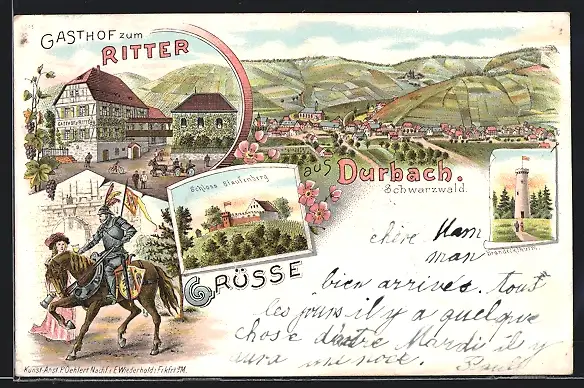 GASTHOF zum
RITTER
GASTHOF z. RITTER
Schloss Staufenberg
aus Durbach.
Schwarzwald.
Brandeckthurm.
GRÜSSE
chère Mam
man
bien arrivés. tout
les jours il y a quelque
chose d'autre Mardi il y
aura une noce.
Paul
Kunst-Anst. P. Oehlert Nachf.: E. Wiederhold: Frkfrt. a/M.